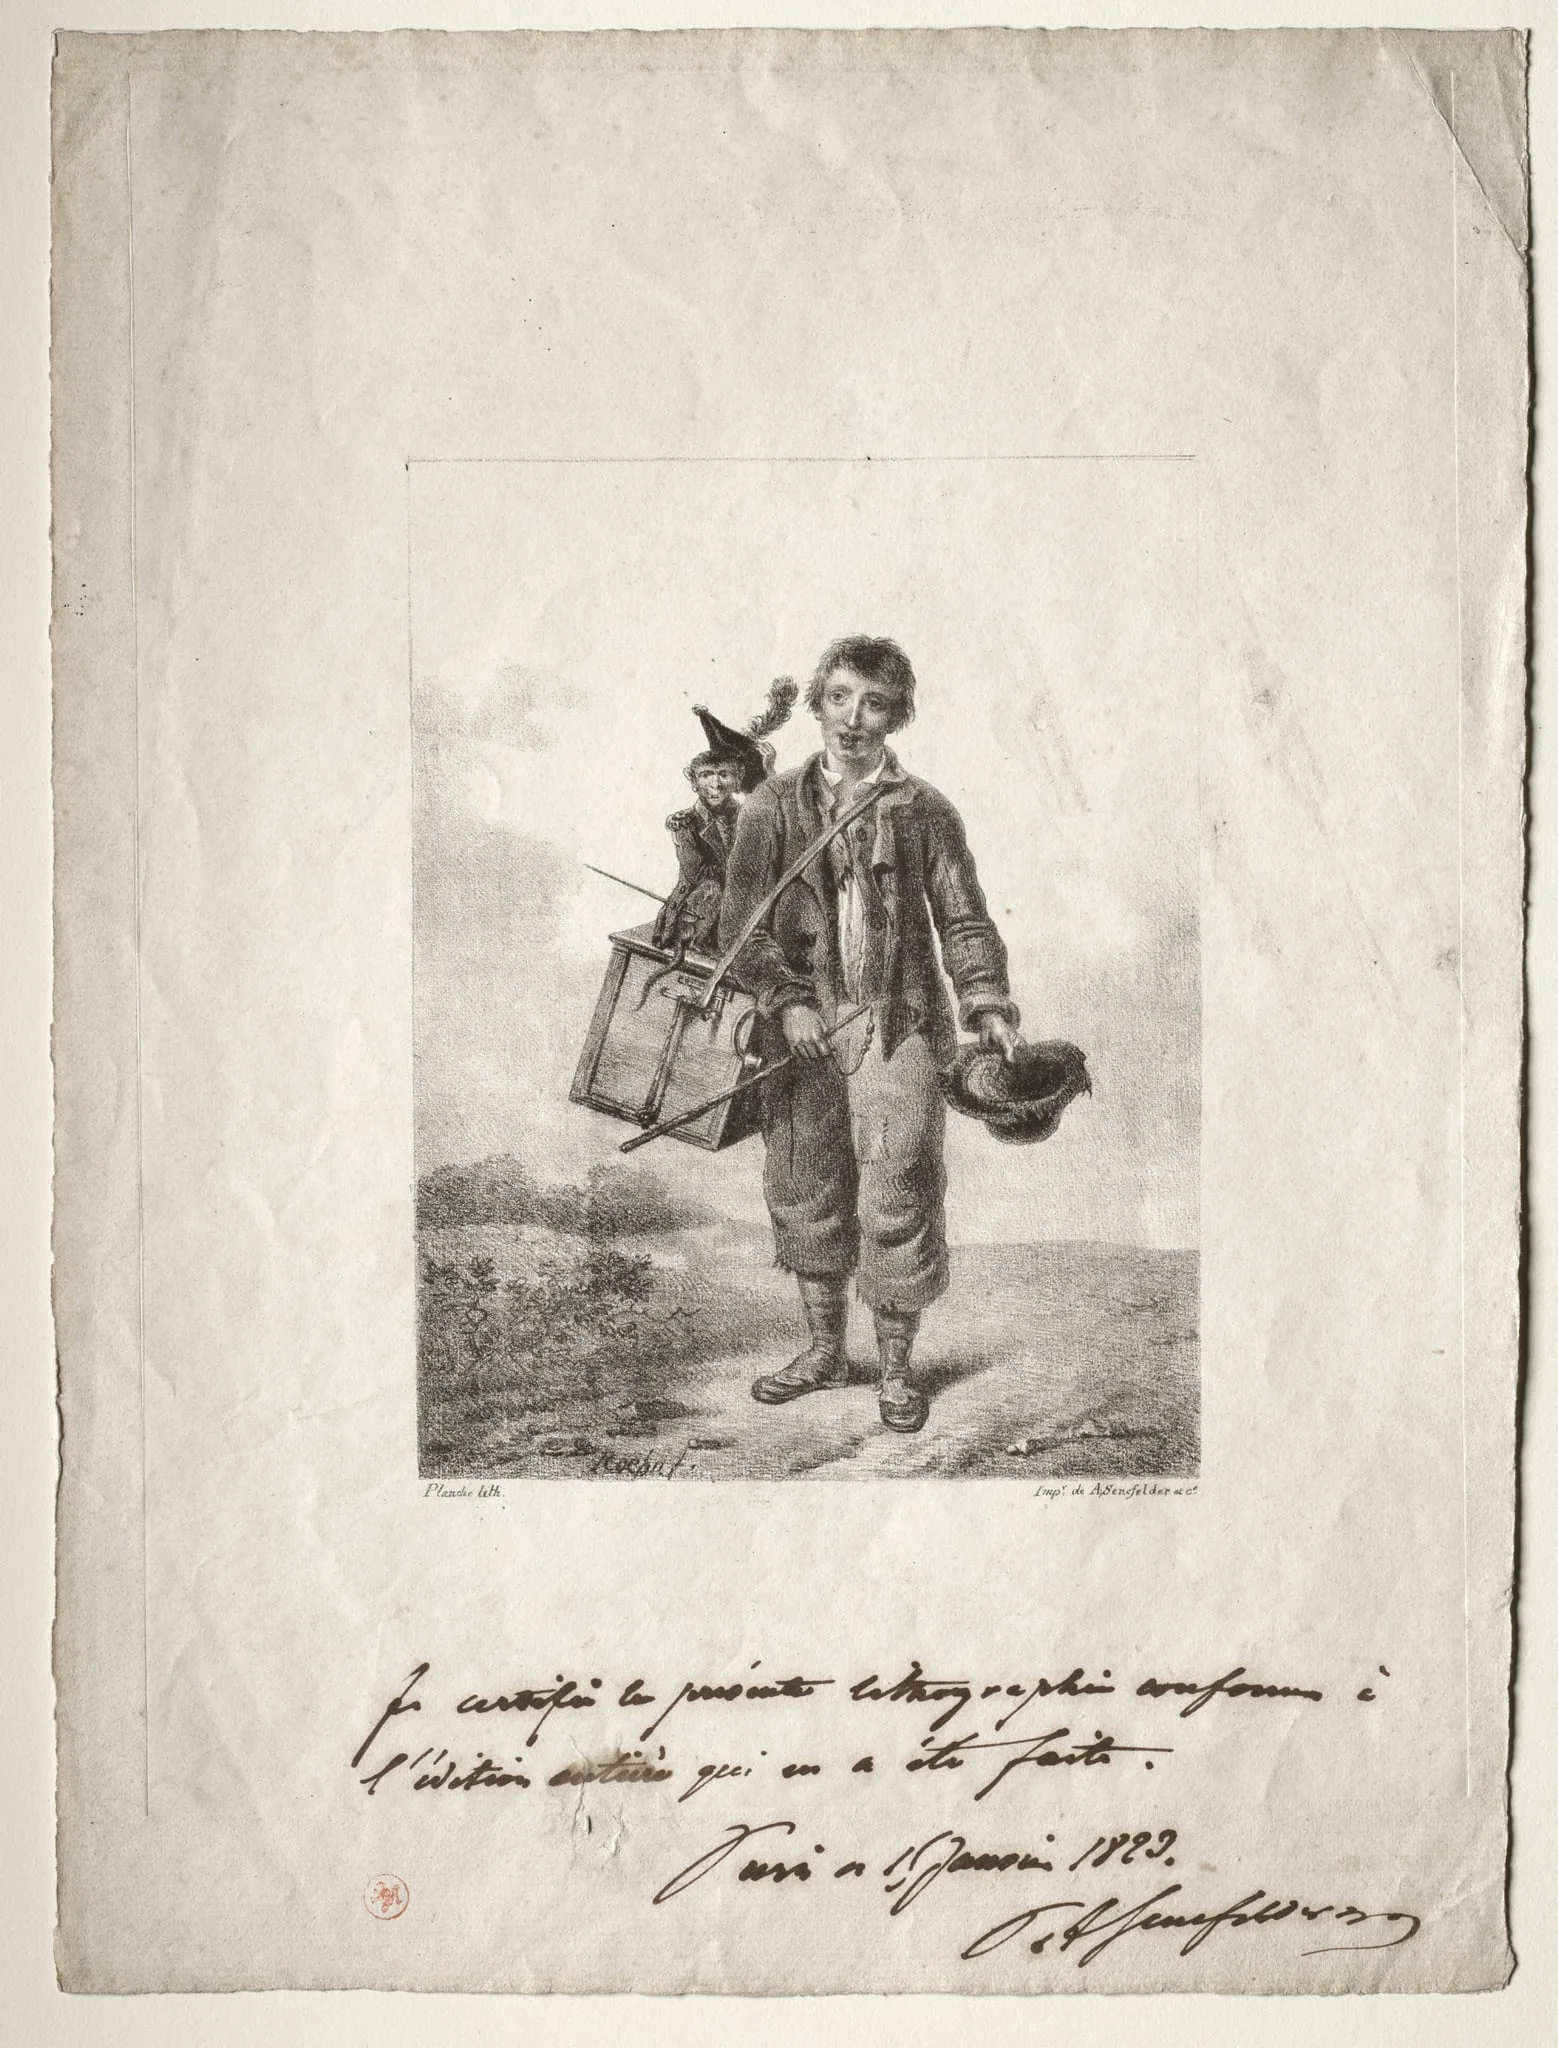 Roehn f.
Planche lith.
Impr. de A. Senefelder et Ce.
Je certifie la présente lithographie conforme à
l'édition entière qui en a été faite.
Paris ce 15 Janvier 1823.
A Senefelder